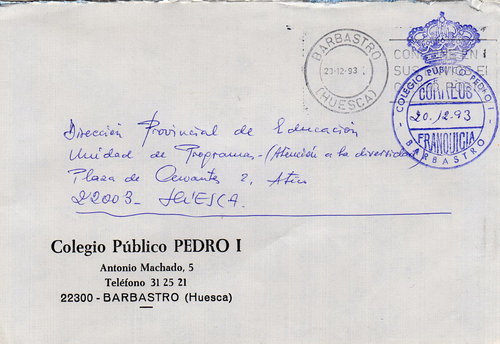 BARBASTRO
(HUESCA)
COLEGIO PUBLICO PEDRO I
CORREOS
20.12.93
FRANQUICIA
BARBASTRO
Dirección Provincial de Educación
Unidad de Programas-(Atención a la diversidad)
Plaza de Cervantes 2,
22003- HUESCA.
Colegio Público PEDRO I
Antonio Machado, 5
Teléfono 31 25 21
22300 - BARBASTRO (Huesca)